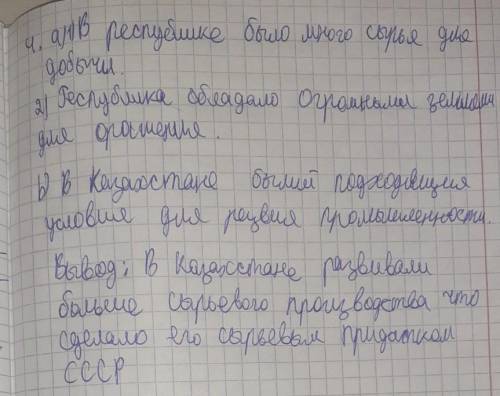 4. a) 1) В республике было много сырья для
добычи.
2) Республика обладало Огромными землями
для орошения.
b) В Казахстане былий подходящия
условия для развия промышленности.
Вывод: В Казахстане развивали
больше сырьевого производства что
сделало его сырьевым придатком
СССР